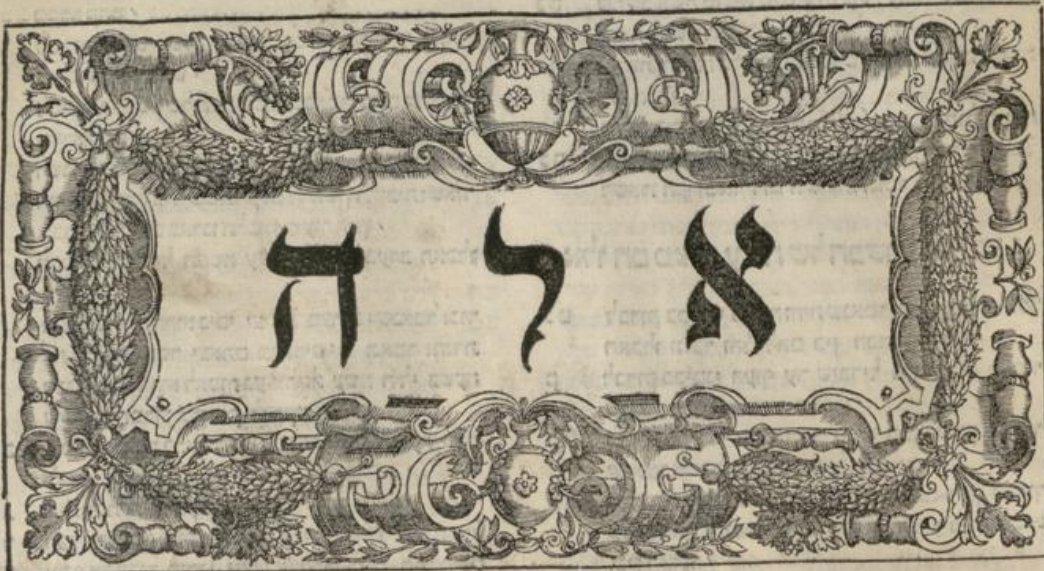 אלה